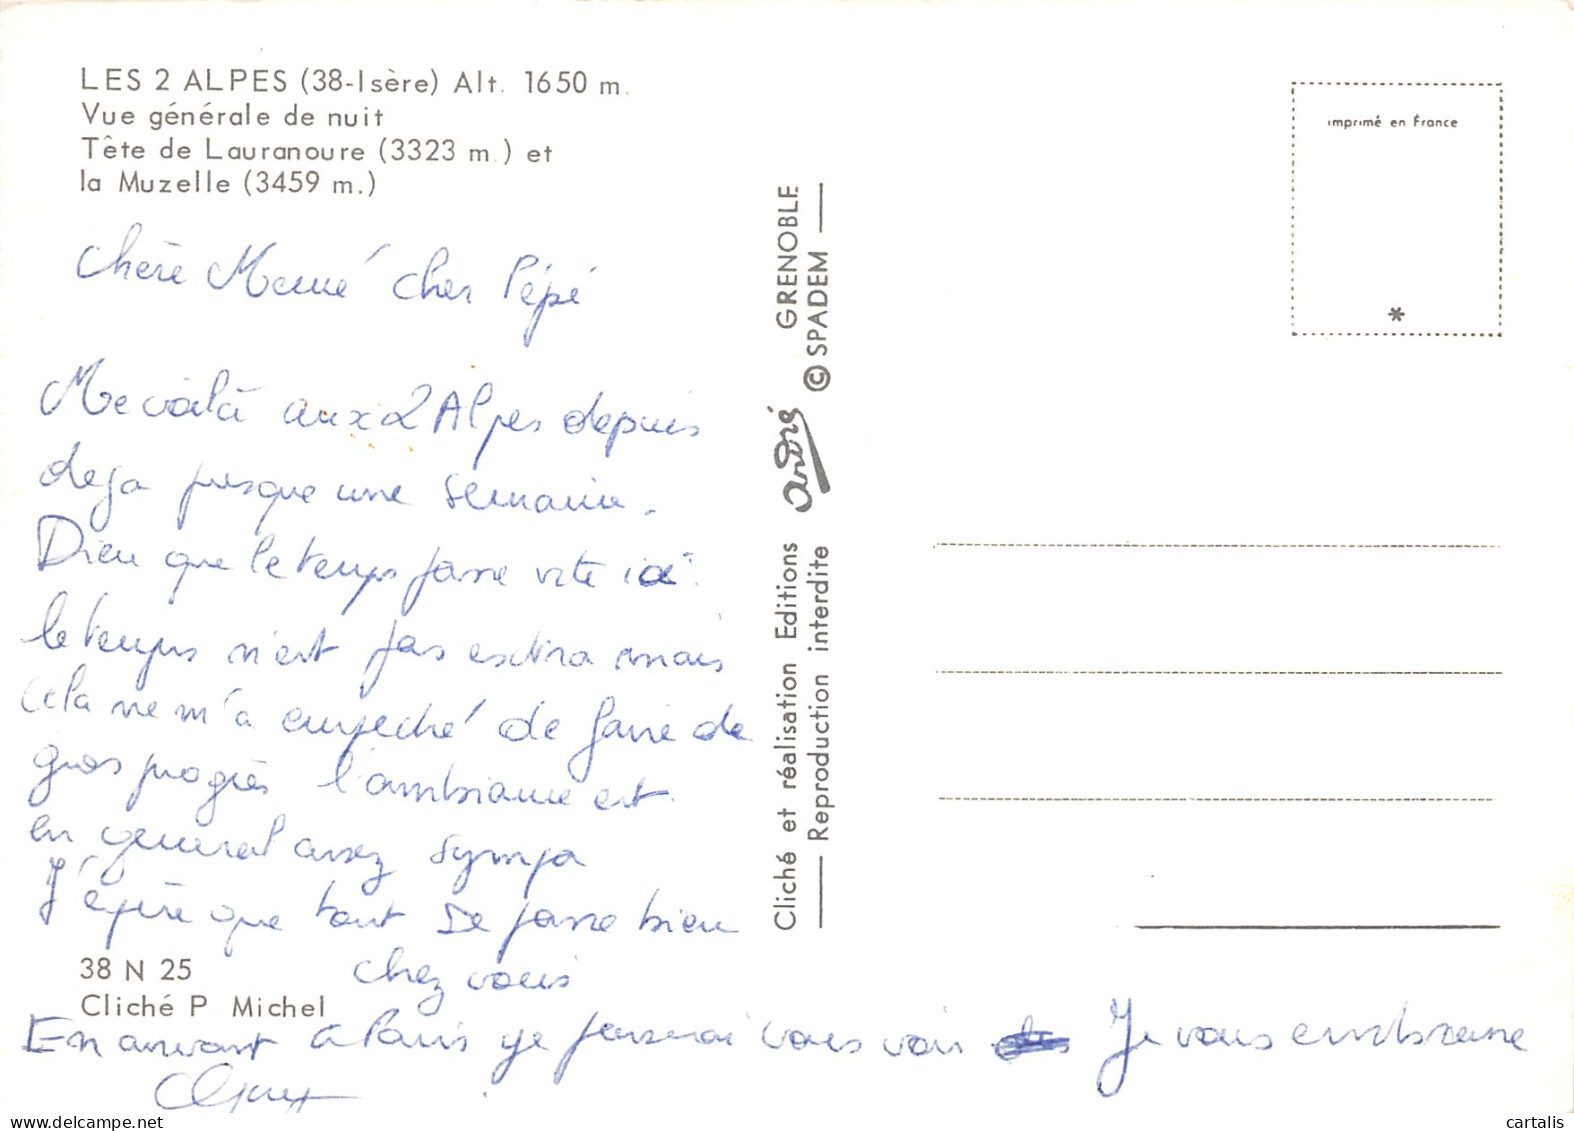 LES 2 ALPES (38-Isère) Alt. 1650 m.
Vue générale de nuit
Tête de Lauranoure (3323 m.) et
la Muzelle (3459 m.)
Chère Mamé cher Pépé
Me voilà aux 2 Alpes depuis
deja presque une semaine.
Dieu que le temps passe vite ici
le temps n'est pas extra mais
cela ne m'a empeché de faire de
gros progrès l'ambiance est
en general assez sympa
J'éspère que tout se passe bien
chez vous
En arrivant à Paris je passerai vous voir Je vous embrasse
38 N 25
Cliché P Michel
Cliché et réalisation Editions André GRENOBLE
Reproduction interdite © SPADEM
imprimé en France
*
www.delcampe.net
cartalis